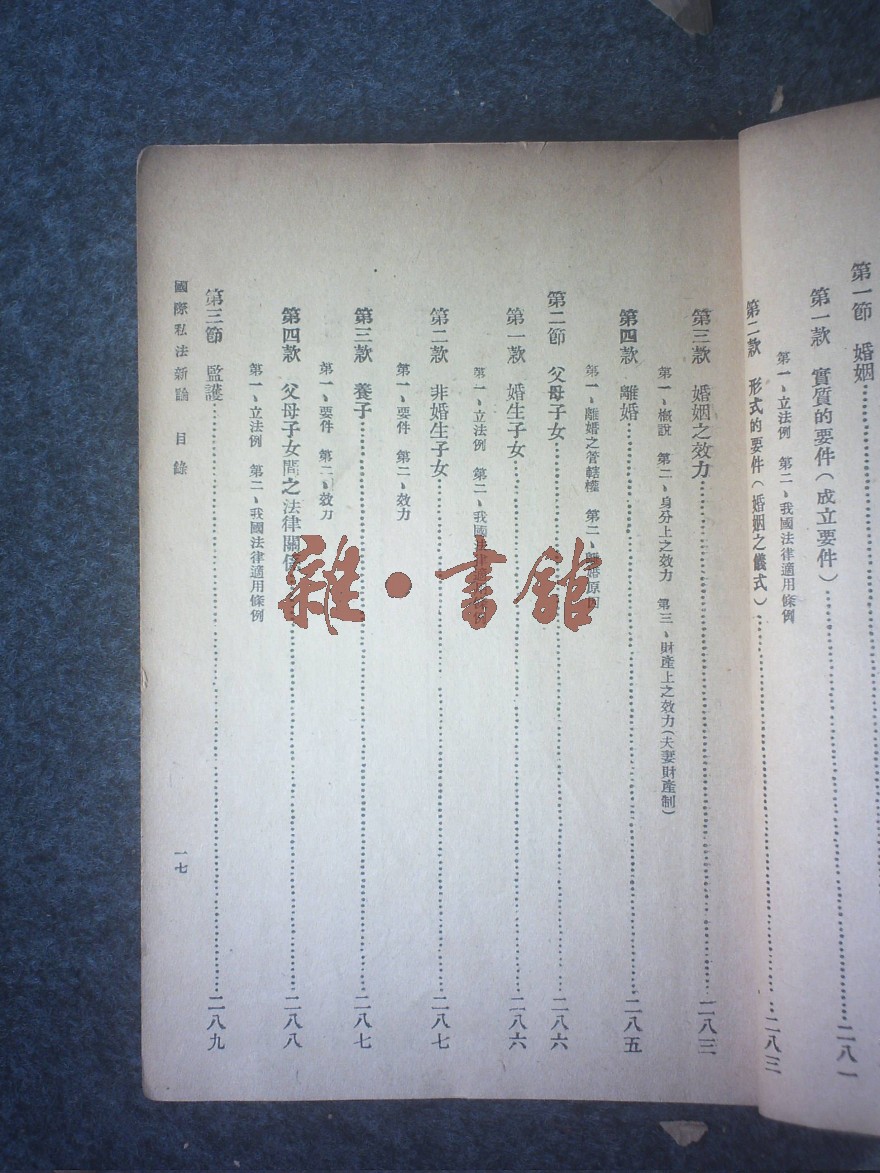 第一節 婚姻……二八一
第一款 實質的要件（成立要件）……二八一
第一、立法例 第二、我國法律適用條例
第二款 形式的要件（婚姻之儀式）……二八三
第三款 婚姻之效力……二八三
第一、概說 第二、身分上之效力 第三、財產上之效力（夫妻財產制）
第四款 離婚……二八五
第一、離婚之管轄權 第二、離婚原因
第二節 父母子女……二八六
第一款 婚生子女……二八六
第一、立法例 第二、我國法律適用條例
第二款 非婚生子女……二八七
第一、要件 第二、效力
第三款 養子……二八七
第一、要件 第二、效力
第四款 父母子女間之法律關係……二八八
第一、立法例 第二、我國法律適用條例
第三節 監護……二八九
國際私法新論 目錄 一七
雜·書館